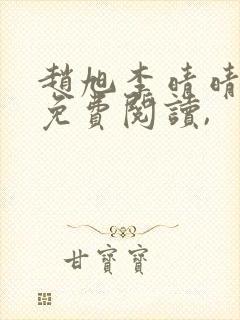 趙旭李晴晴
免費閱讀,
甘寶寶